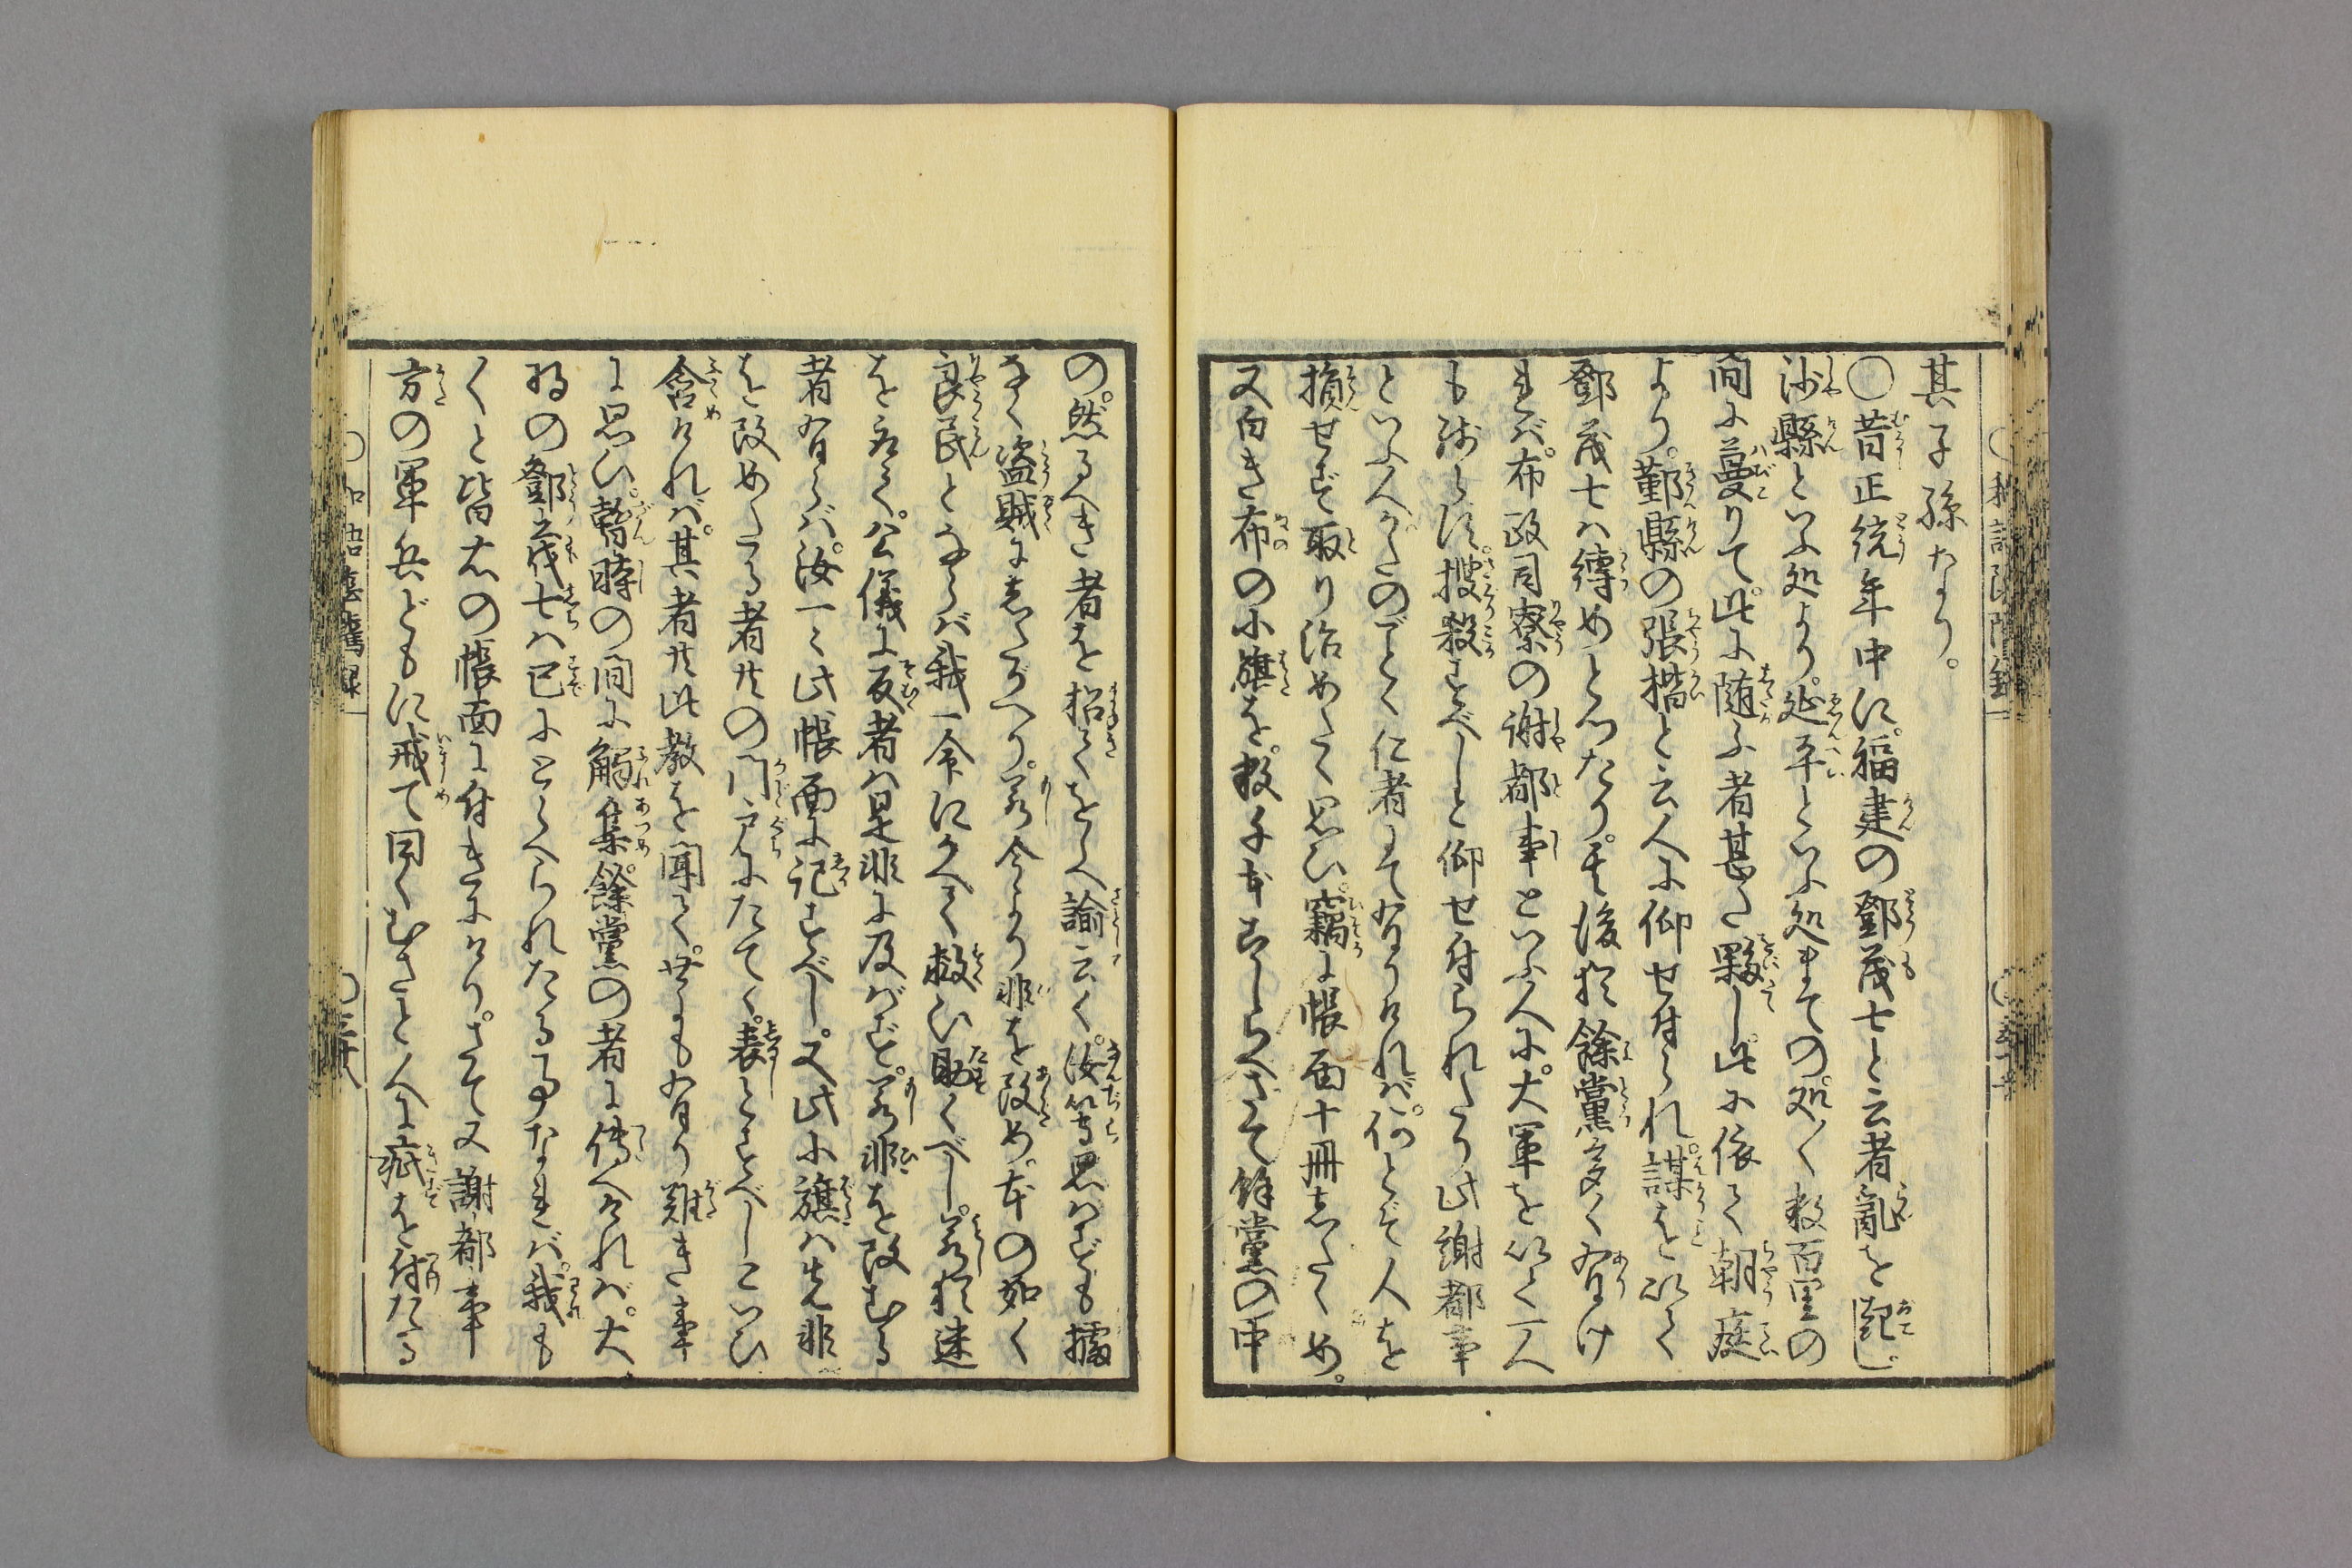 其子孫なり。
○昔正統年中に。福建の鄧茂七と云者亂を起し。
沙縣といふ処より。延平といふ処までの。処〱数百里の
間に蔓りて。此に随ふ者甚た夥し。此に依て朝庭
より。鄞縣の張楷と云人に仰せ付られ。謀を以て
鄧茂七は縛めとつたり。其後猶餘黨多く有け
れば。布政司寮の謝都事といふ人に。大軍を以て一人
も残らず。捜殺すべしと仰せ付られたり此謝都事
といふ人がらのごとく仁者にて有りければ。何とぞ人を
損せず取り治めたく思ひ。竊に帳面十冊したゝめ。
又白き布の小旗を。数千本こしらへさて餘黨の中
の。然るべき者を招てをしへ諭云く。汝等思はずも據
なく盗賊にしたがへり。若今より非を改め。本の如く
良民とならば我一命にかへて救ひ助くべし。若猶迷
を立て。公儀に反者は是非に及ばず。若非を改むる
者有らば。汝一〻此帳面に記すべし。又此小旗は先非
を改めたる者共の門戸にたてて。表とすべしといひ
含ければ。其者共此教を聞て。世にも有り難き事
に思ひ。暫時の間に觸集。餘黨の者に傳へければ。大
将の鄧茂七は已にとらへられたる事なれば。我も
〱と皆右の帳面に付きにけり。さて又謝都事
方の軍兵どもに戒て同くむさと人に疵を付たる